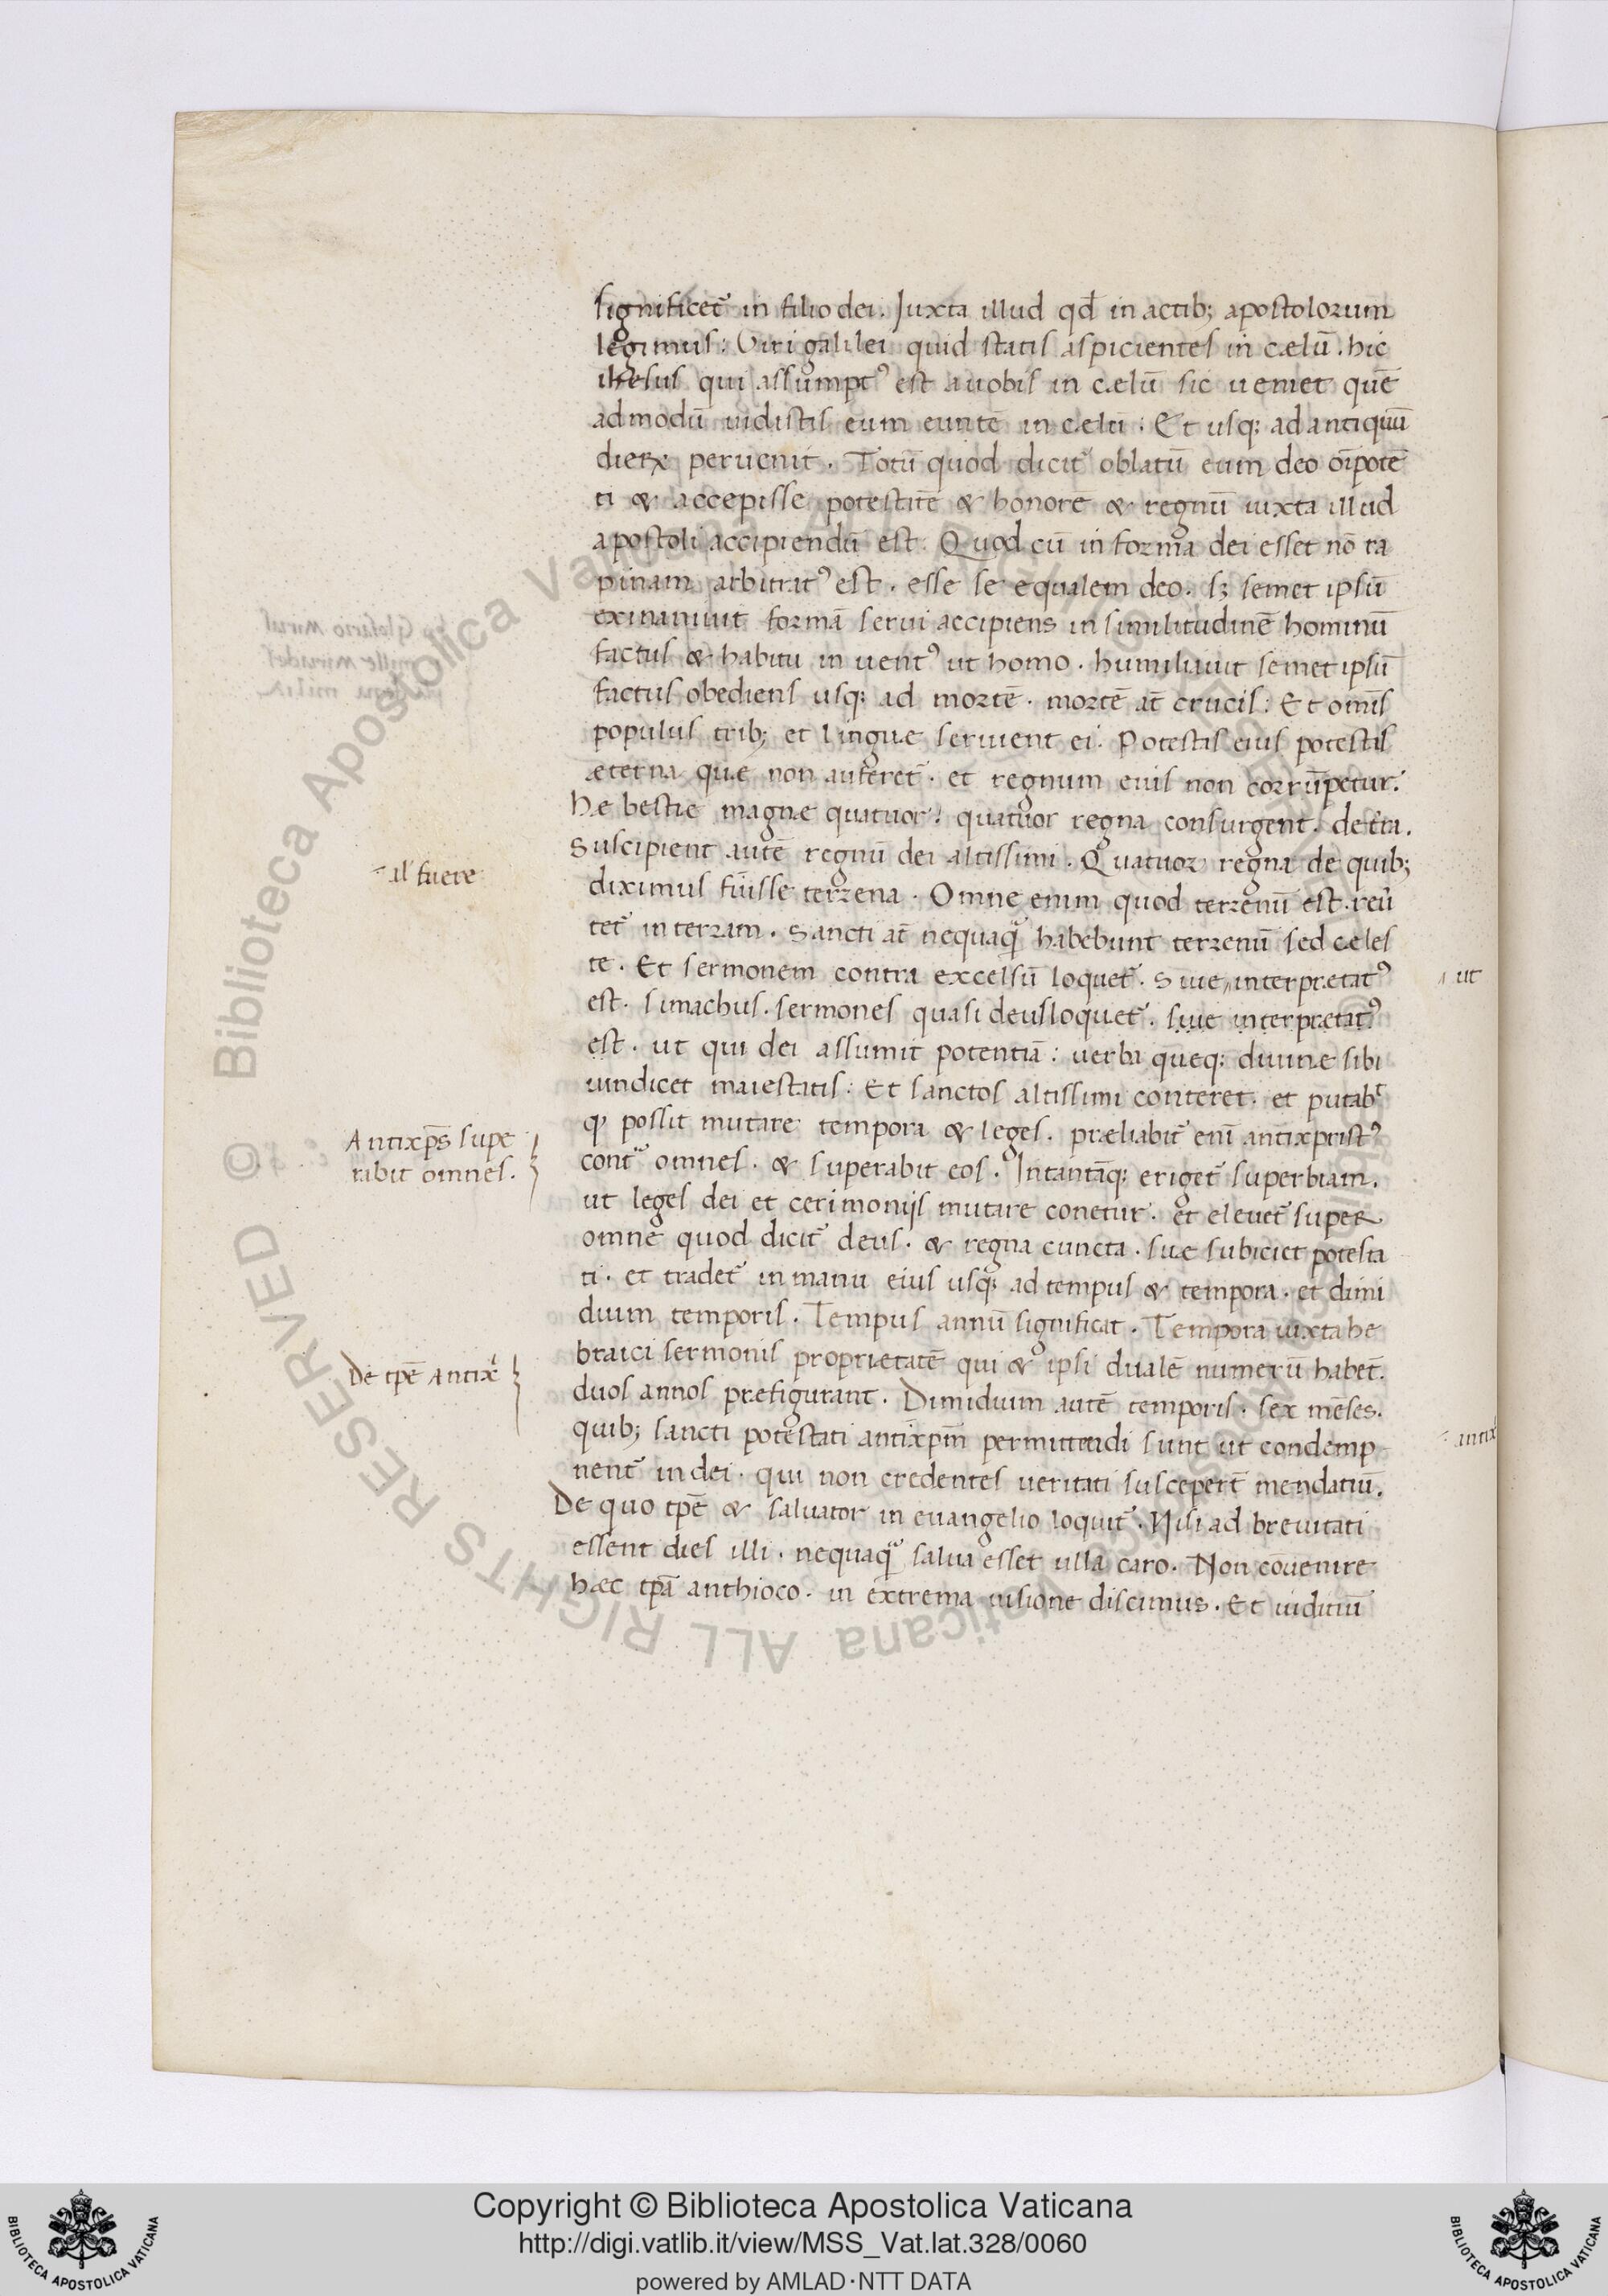 significet᷑ in filio dei. Juxta illud qđ in actib; apostolorum
legimus: Viri galilei quid statis aspicientes in cælū. hic
ihesus qui assumptꝰ est a vobis in cælū sic veniet quē
admodū vidistis eum euntē in celū. Et usq; ad antiquū
dierꝝ pervenit. Totū quod dicit᷑ oblatū eum deo oīpotē
ti & accepisse potestatē & honorē & regnū iuxta illud
apostoli accipiendū est. Quod cū in forma dei esset nō ra
pinam arbitratꝰ est. esse se equalem deo. sꝫ semet ipsū
exinanivit formā servi accipiens in similitudinē hominū
factus & habitu inventꝰ ut homo. humiliavit semet ipsū
factus obediens usq; ad mortē. mortē at̄ crucis: Et omīs
populus trib; et linguæ servient ei. Potestas eius potestas
æterna quæ non auferet᷑. et regnum eius non corrūpetur.
Hæ bestiæ magnæ quatuor: quatuor regna consurgent. de t̄ra.
Suscipient autē regnū dei altissimi. Quatuor regna de quib;
diximus fuisse terrena. Omne enim quod terrenū est. rev̄
tet᷑ in terram. Sancti at̄ nequaq̄ habebunt terrenū sed celes
te. Et sermonem contra excelsū loquet᷑. Sive interpretatꝰ
est. simachus. sermones quasi deus loquet᷑. sive interpretatꝰ
est. ut qui dei assumit potentiā: verba queq; divinæ sibi
vindicet maiestatis: Et sanctos altissimi conteret. et putabᵗ
ꝙ possit mutare tempora & leges. præliabit᷑ enī antixpristꝰ
contᵃ omnes. & superabit eos. Intantāq; eriget᷑ superbiam.
ut leges dei et cerimonijs mutare conetur. et elevet᷑ super
omne quod dicit᷑ deus. & regna cuncta. suæ subiciet potesta
ti. et tradet᷑ in manu eius usq; ad tempus & tempora. et dimi
dium temporis. Tempus annū significat. Tempora iuxta he
braici sermonis proprietatē qui & ipsi dualē numerū habet̄.
duos annos præfigurant. Dimidium autē temporis. sex mēses.
quib; sancti potestati antixpm̄ permittendi sunt ut condemp
nent᷑ iudei. qui non credentes veritati susceper̄t mendatiū.
De quo tpē & salvator in evangelio loquit᷑. Nisi ad brevitati
essent dies illi. nequaq̄ salva esset ulla caro. Non cōvenire
hæc tpā anthioco. in extrema visione discimus. Et iuditiū
al fuere
Antixp̄s supe
rabit omnes.
De tpē Antix
ut
antix
Copyright © Biblioteca Apostolica Vaticana
http://digi.vatlib.it/view/MSS_Vat.lat.328/0060
powered by AMLAD·NTT DATA
BIBLIOTECA APOSTOLICA VATICANA
BIBLIOTECA APOSTOLICA VATICANA
© Biblioteca Apostolica Vaticana ALL RIGHTS RESERVED
© Biblioteca Apostolica Vaticana ALL RIGHTS RESERVED